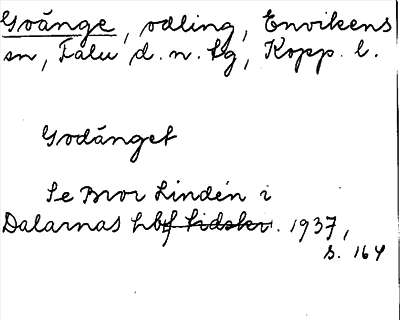 Goänge, odling, Envikens
sn, Falu d. n. tg, Kopp. l.
Godänget
Se Bror Lindén i
Dalarnas hbf tidskr. 1937,
s. 164